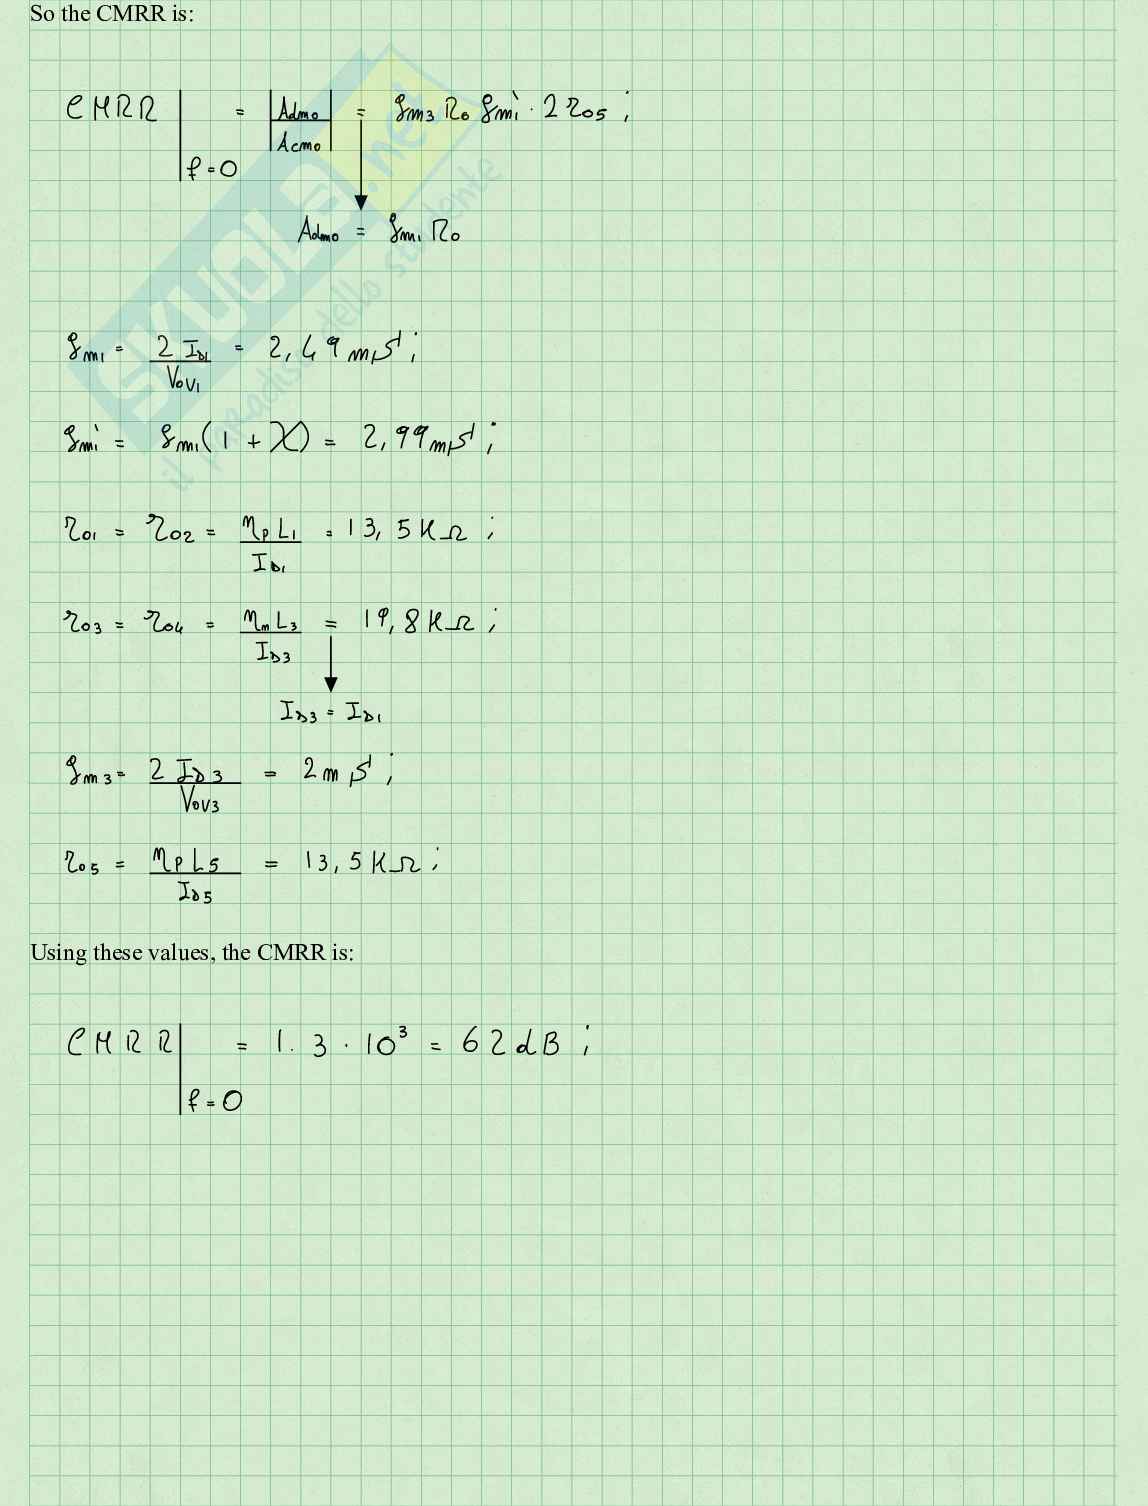 So the CMRR is:
CMRR|f=0 = |Admo/Acmo| = gm3 Ro gm1' · 2 ro5 ;
Admo = gm1 Ro
gm1 = 2 ID1 / VOV1 = 2,49 mS ;
gm1' = gm1 (1 + χ) = 2,99 mS ;
ro1 = ro2 = ηp L1 / ID1 = 13,5 KΩ ;
ro3 = ro4 = ηm L3 / ID3 = 19,8 KΩ ;
ID3 = ID1
gm3 = 2 ID3 / VOV3 = 2 mS ;
ro5 = ηp L5 / ID5 = 13,5 KΩ ;
Using these values, the CMRR is:
CMRR|f=0 = 1.3 · 10³ = 62 dB ;
SKUOLA.net
il paradiso dello studente